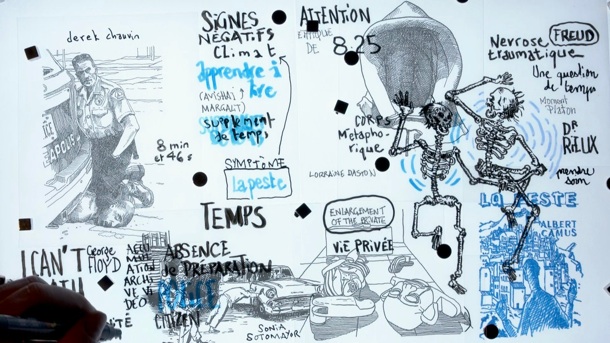 derek chauvin
8 min
et 46 s
I CAN'T
George
FLOYD
SIGNES
NÉGATIFS
CLimat
apprendre à
lire
(AVISHAI
MARGALIT)
supplément
de temps
SYMPTÔME
La peste
TEMPS
ABSENCE
de PRÉPARATION
POLICE
CITIZEN
SONIA
SOTOMAYOR
ATTENTION
DE 8.25
CORPS
Métapho-
rique
LORRAINE DASTON
ENLARGEMENT
OF THE PRIVATE
VIE PRIVÉE
FREUD
Nevrose
traumatique
Une question
de temps
Platon
DR
RIEUX
prendre soin
LA PESTE
ALBERT
CAMUS